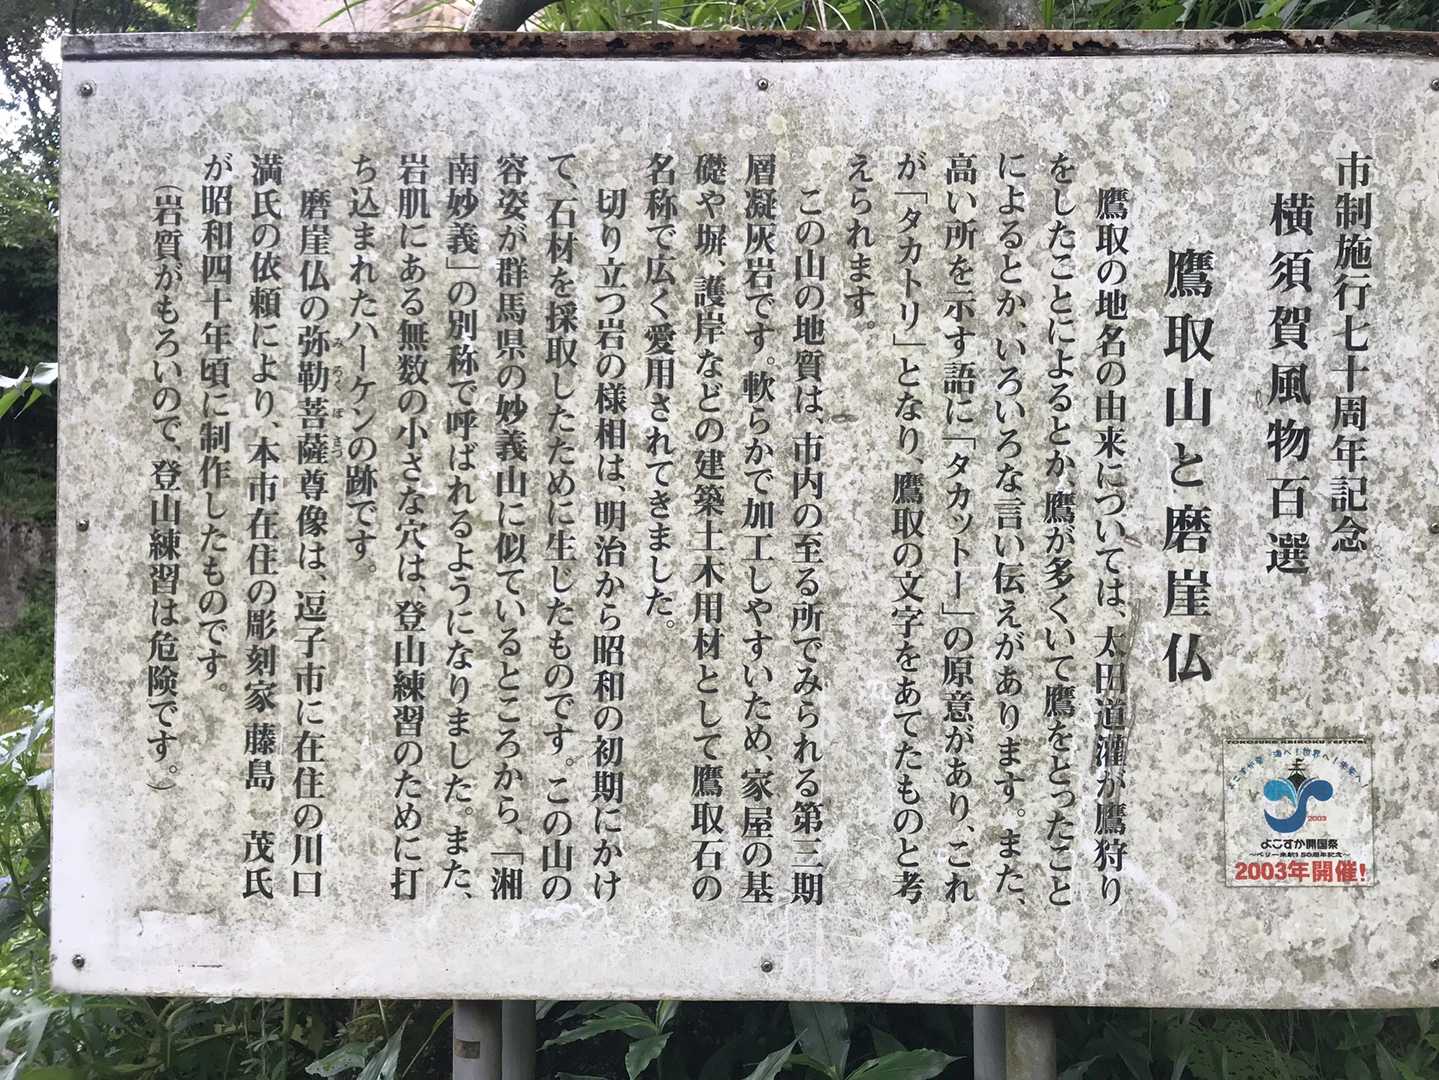 市制施行七十周年記念
横須賀風物百選
鷹取山と磨崖仏
鷹取の地名の由来については、太田道灌が鷹狩り
をしたことによるとか、鷹が多くいて鷹をとったこと
によるとか、いろいろな言い伝えがあります。また、
高い所を示す語に「タカットー」の原意があり、これ
が「タカトリ」となり、鷹取の文字をあてたものと考
えられます。
この山の地質は、市内の至る所でみられる第三期
層凝灰岩です。軟らかで加工しやすいため、家屋の基
礎や塀、護岸などの建築土木用材として鷹取石の
名称で広く愛用されてきました。
切り立つ岩の様相は、明治から昭和の初期にかけ
て、石材を採取したために生したものです。この山の
容姿が群馬県の妙義山に似ているところから、「湘
南妙義」の別称で呼ばれるようになりました。また、
岩肌にある無数の小さな穴は、登山練習のために打
ち込まれたハーケンの跡です。
磨崖仏の弥勒菩薩尊像は、逗子市に在住の川口
みろくぼさつ
満氏の依頼により、本市在住の彫刻家 藤島 茂氏
が昭和四十年頃に制作したものです。
(岩質がもろいので、登山練習は危険です。)
YOKOSUKA KAIKOKU FESTIVAL
2003
よこすか開国祭
〜ペリー来航150周年記念〜
2003年開催!